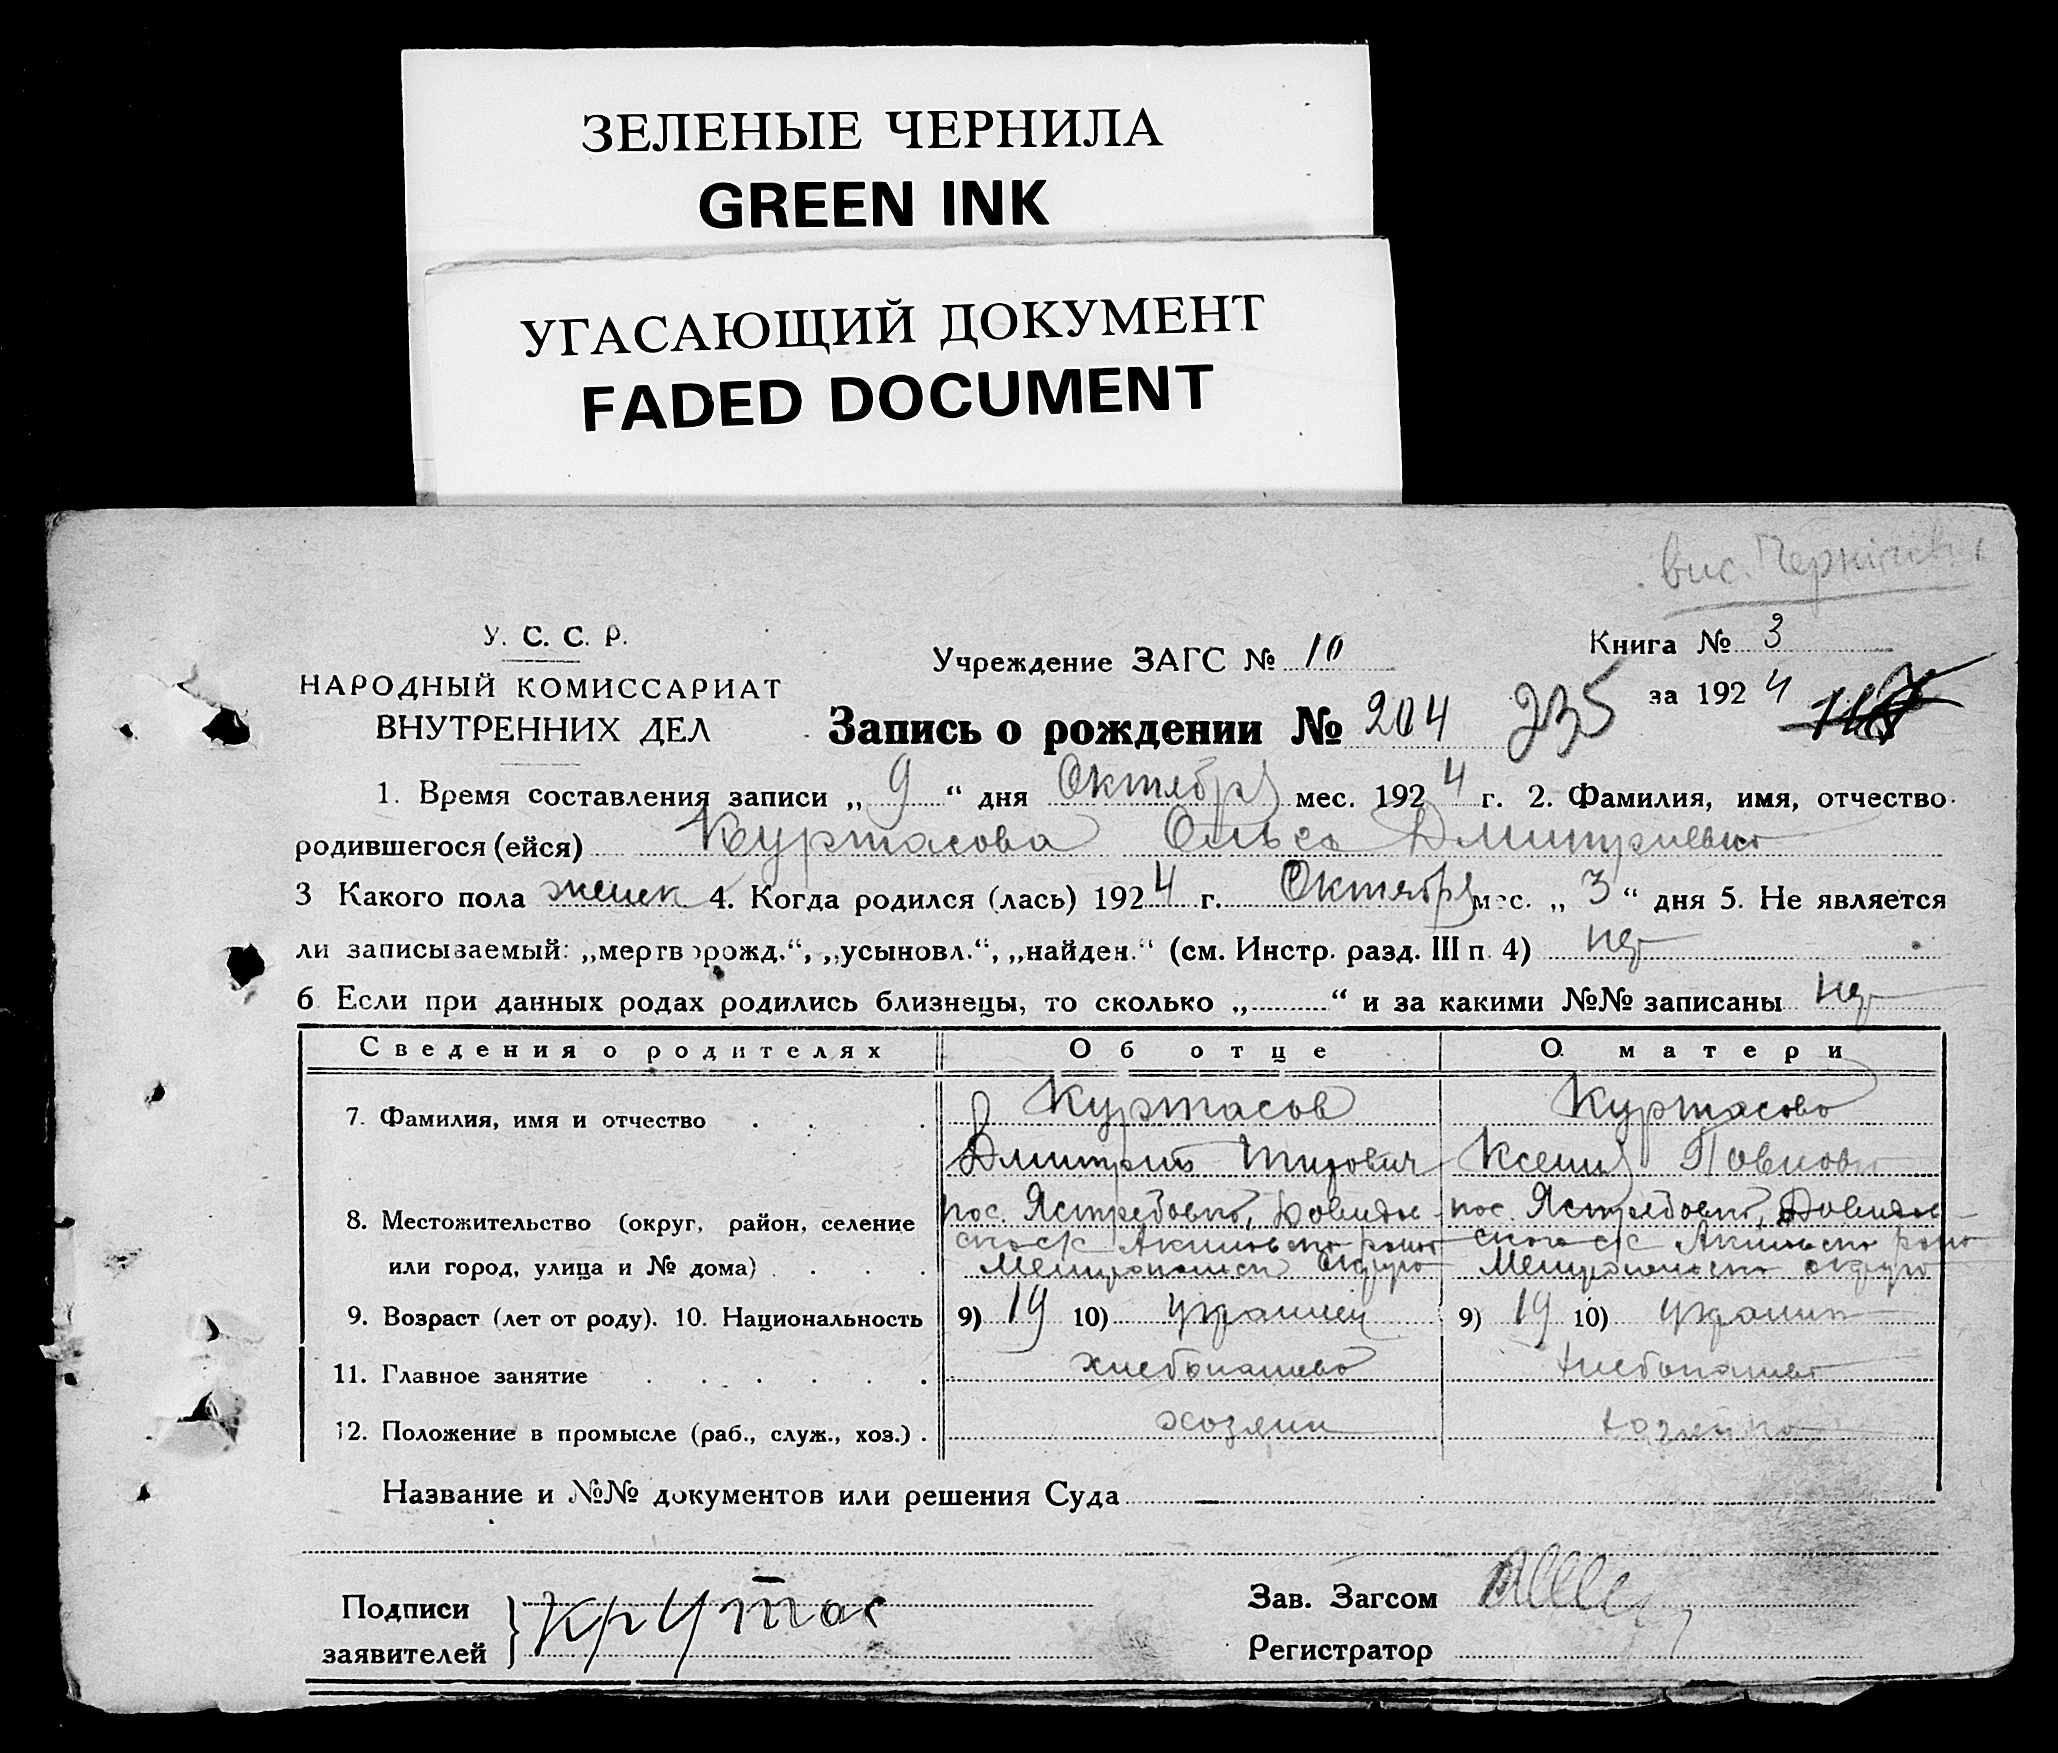 ЗЕЛЕНЫЕ ЧЕРНИЛА
GREEN INK
УГАСАЮЩИЙ ДОКУМЕНТ
FADED DOCUMENT
вис.
У. С. С. Р.
НАРОДНЫЙ КОМИССАРИАТ
ВНУТРЕННИХ ДЕЛ
Учреждение ЗАГС № 10
Книга № 3
за 1924
Запись о рождении № 204 235
1. Время составления записи „ 9 “ дня Октября мес. 1924 г. 2. Фамилия, имя, отчество
родившегося (ейся) Куртасова Ольга Дмитриевна
3 Какого пола женск 4. Когда родился (лась) 1924 г. Октября мес. „ 3 “ дня 5. Не является
ли записываемый: „мертворожд.“, „усыновл.“, „найден.“ (см. Инстр. разд. III п. 4) нет
6. Если при данных родах родились близнецы, то сколько „..........“ и за какими №№ записаны нет
Сведения о родителях Об отце О матери
7. Фамилия, имя и отчество Куртасов Куртасова
Дмитрий Титович Ксения Павловн
8. Местожительство (округ, район, селение пос. Ястребовка, пос. Ястребовка,
или город, улица и № дома) Мелитопольск округа Мелитопольска округа
9. Возраст (лет от роду). 10. Национальность 9) 19 10) украинец 9) 19 10) украинк
11. Главное занятие хлебопашево хлебопашев
12. Положение в промысле (раб., служ., хоз.) хозяин хозяйка
Название и №№ документов или решения Суда —
Подписи
заявителей
Крутас
Зав. Загсом
Регистратор